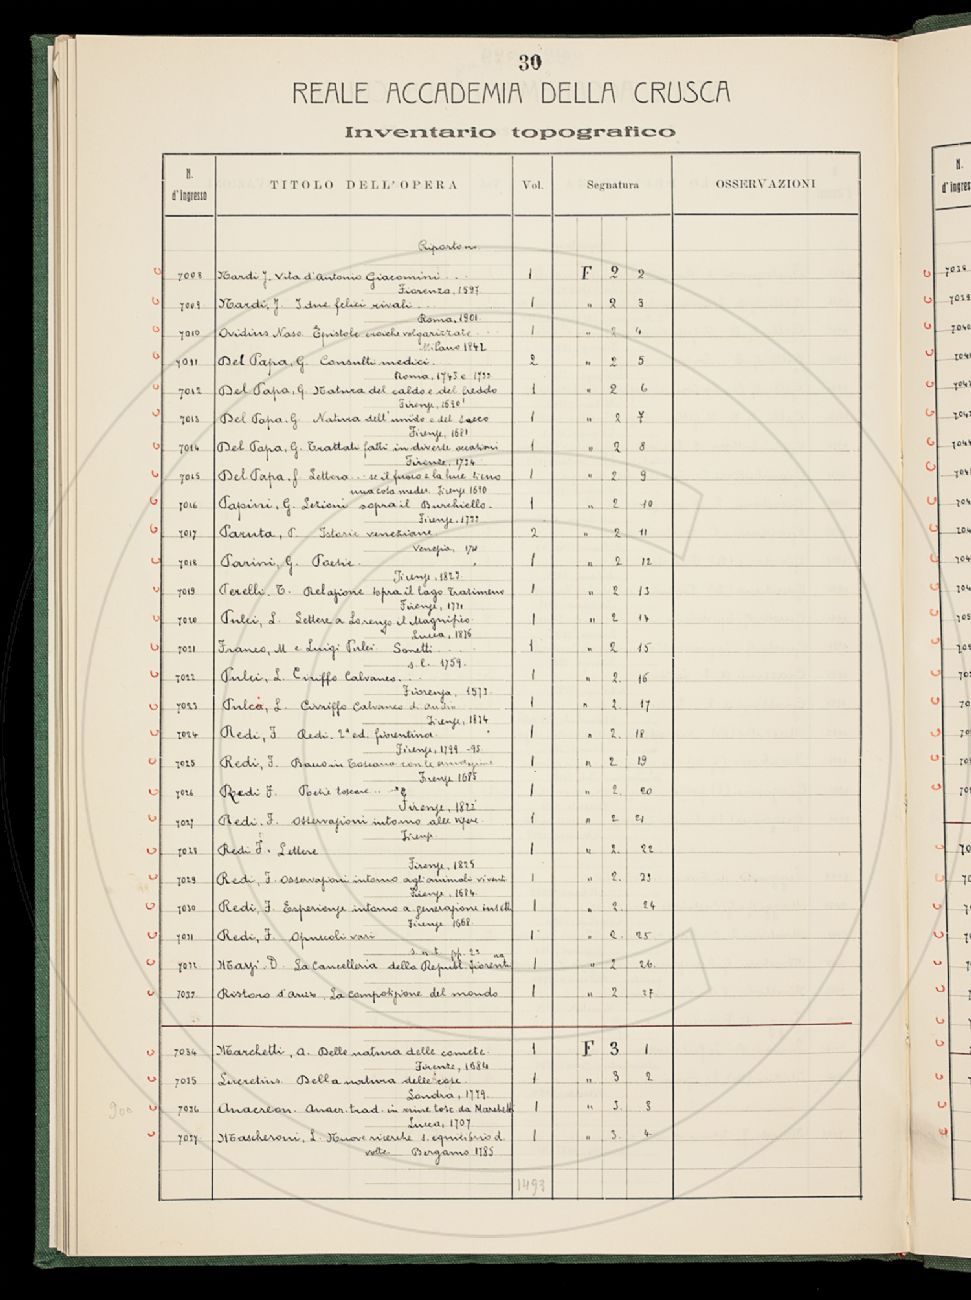 30
REALE ACCADEMIA DELLA CRUSCA
Inventario topografico
N. d'Ingresso TITOLO DELL'OPERA Vol. Segnatura OSSERVAZIONI
Riporto n.
7008 Nardi J. Vita d'Antonio Giacomini . . . 1 F 2 2
Fiorenza, 1597
7009 Nardi, J. I due felici rivali . . . 1 " 2 3
Roma, 1901
7010 Ovidius Naso. Epistole eroiche volgarizzate 1 " 2 4
Milano 1842
7011 Del Papa, G. Consulti medici. 2 " 2 5
Roma, 1743 e 1733
7012 Del Papa, G. Natura del caldo e del freddo 1 " 2 6
Firenze, 1690
7013 Del Papa. G. Natura dell'umido e del secco 1 " 2 7
Firenze, 1681
7014 Del Papa, G. Trattati fatti in diverse occasioni 1 " 2 8
Firenze, 1734
7015 Del Papa, f. Lettera . . . se il fuoco e la luce sieno 1 " 2 9
una cosa medes. Firenze 1690
7016 Papini, G. Lezioni sopra il Burchiello. 1 " 2 10
Firenze, 1733
7017 Paruta, P. Istorie veneziane 2 " 2 11
Venezia,
7018 Parini, G. Poesie. 1 " 2 12
Firenze, 1825
7019 Perelli. T. Relazione sopra il lago Trasimeno 1 " 2 13
Firenze, 1771
7020 Pulci, L. Lettere a Lorenzo il Magnifico 1 " 2 14
Lucca, 1886
7021 Franco, M e Luigi Pulci Sonetti 1 " 2 15
s. l. 1759.
7022 Pulci, L. Ciriffo Calvaneo. . . 1 " 2. 16
Fiorenza, 1573
7023 Pulci, L. Ciriffo Calvaneo d. Audin 1 " 2. 17
Firenze, 1834
7024 Redi, F. Redi. 2ª ed. fiorentina 1 " 2. 18
Firenze, 1799 -95
7025 Redi, F. Bacco in Toscana con le annotazioni 1 " 2 19
Firenze 1685
7026 Redi F. Poesie toscane . . . 1 " 2. 20
Firenze, 1822
7027 Redi. F. Osservazioni intorno alle vipere. 1 " 2 21
Firenze.
7028 Redi F. Lettere 1 " 2. 22
Firenze, 1825
7029 Redi, F. Osservazioni intorno agli animali viventi 1 " 2. 23
Firenze, 1684
7030 Redi, F. Esperienze intorno a generazione insetti 1 " 2. 24
Firenze 1668
7031 Redi, F. Opuscoli vari 1 " 2. 25
s. n. t. pp. 23
7032 Marzi. D. La Cancelleria della Republ. fiorentina 1 " 2 26.
7033 Ristoro d'Arezzo, La composizione del mondo 1 " 2 27
7034 Marchetti, A. Della natura delle comete. 1 F 3 1
Firenze, 1684
7035 Lucretius. Della natura delle cose. 1 " 3 2
Londra, 1779.
7036 Anacreon. Anacr. trad. in rime tosc. da Marchetti 1 " 3. 3
Lucca, 1707
7037 Mascheroni, L. Nuove ricerche s. equilibrio d. 1 " 3. 4
volte. Bergamo 1785
1493
900